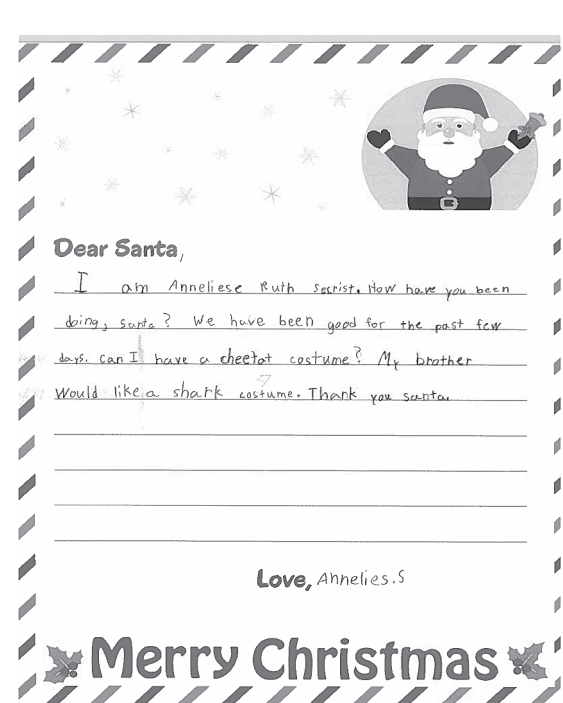 Dear Santa,
I am Anneliese Ruth Secrist. How have you been
doing, santa? We have been good for the past few
days. can I have a cheetat costume? My brother
Would like a shark costume. Thank you santa.
Love, Annelies.S
Merry Christmas